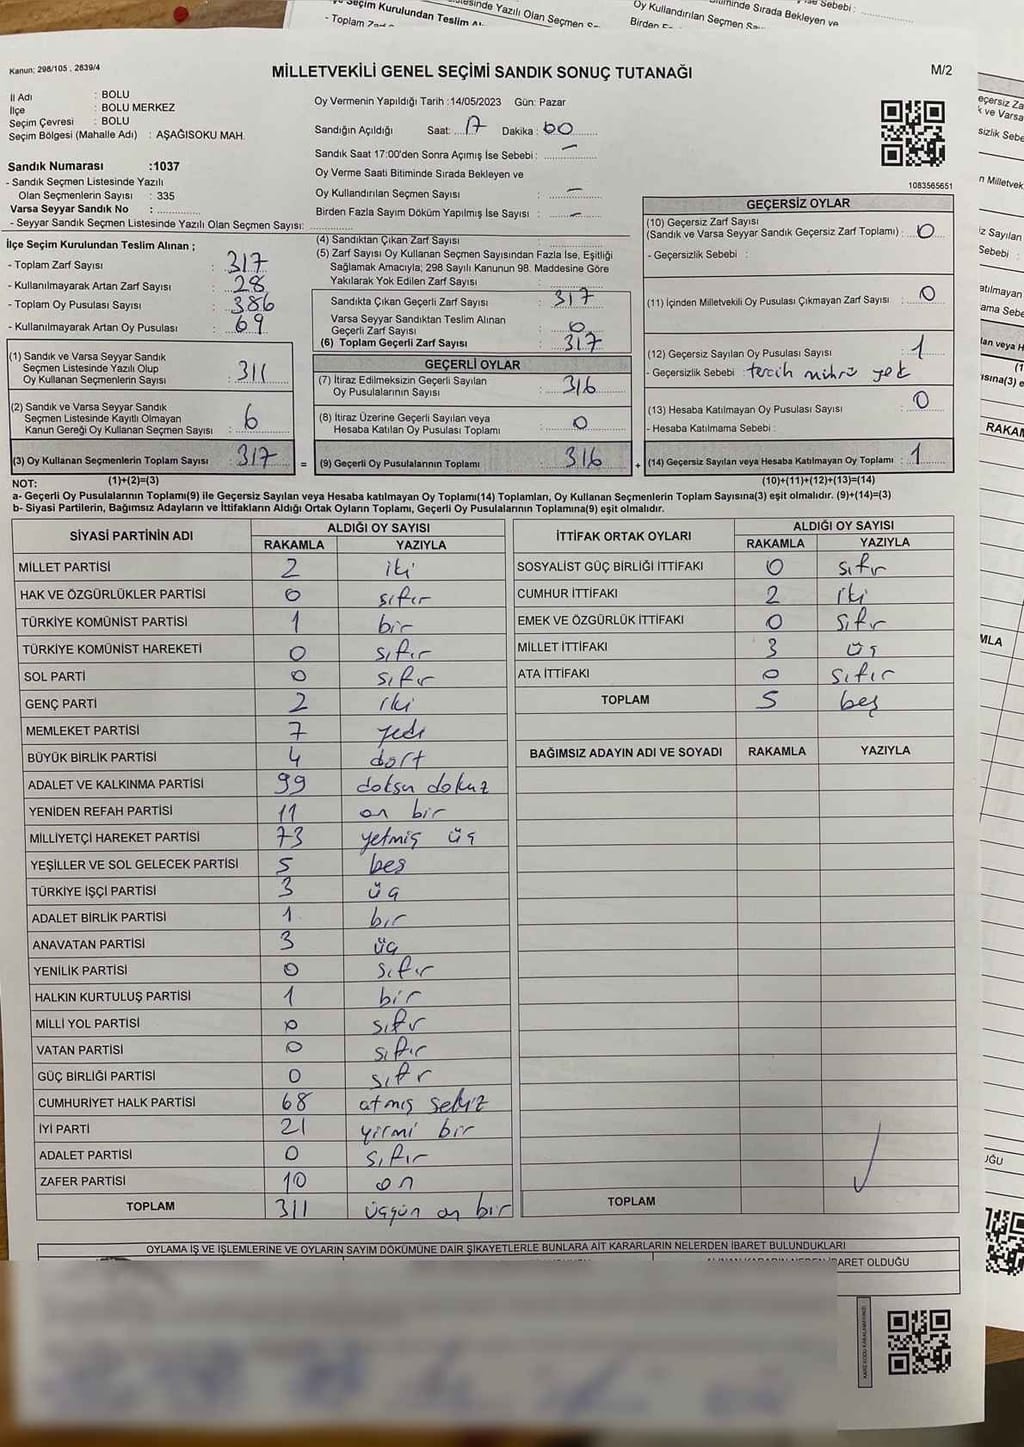 Seçim Kurulundan Teslim
- Toplam
Yazılı Olan Seçmen
Oy Kullandırılan Seçmen
Birden
Bitiminde Sırada Bekleyen ve
Sebebi :
Kanun: 298/105 , 2839/4
MİLLETVEKİLİ GENEL SEÇİMİ SANDIK SONUÇ TUTANAĞI
M/2
İl Adı : BOLU
İlçe : BOLU MERKEZ
Seçim Çevresi : BOLU
Seçim Bölgesi (Mahalle Adı) : AŞAĞISOKU MAH.
Oy Vermenin Yapıldığı Tarih :14/05/2023 Gün: Pazar
Sandığın Açıldığı Saat: 17 Dakika : 00
Sandık Saat 17:00'den Sonra Açımış İse Sebebi : —
Oy Verme Saati Bitiminde Sırada Bekleyen ve
Oy Kullandırılan Seçmen Sayısı : —
Birden Fazla Sayım Döküm Yapılmış İse Sayısı : —
1083565651
Sandık Numarası :1037
- Sandık Seçmen Listesinde Yazılı
Olan Seçmenlerin Sayısı : 335
Varsa Seyyar Sandık No :
- Seyyar Sandık Seçmen Listesinde Yazılı Olan Seçmen Sayısı:
İlçe Seçim Kurulundan Teslim Alınan ;
- Toplam Zarf Sayısı : 317
- Kullanılmayarak Artan Zarf Sayısı : 28
- Toplam Oy Pusulası Sayısı : 386
- Kullanılmayarak Artan Oy Pusulası : 69
(1) Sandık ve Varsa Seyyar Sandık
Seçmen Listesinde Yazılı Olup
Oy Kullanan Seçmenlerin Sayısı : 311
(2) Sandık ve Varsa Seyyar Sandık
Seçmen Listesinde Kayıtlı Olmayan
Kanun Gereği Oy Kullanan Seçmen Sayısı : 6
(3) Oy Kullanan Seçmenlerin Toplam Sayısı : 317
(4) Sandıktan Çıkan Zarf Sayısı :
(5) Zarf Sayısı Oy Kullanan Seçmen Sayısından Fazla İse, Eşitliği
Sağlamak Amacıyla; 298 Sayılı Kanunun 98. Maddesine Göre
Yakılarak Yok Edilen Zarf Sayısı :
Sandıkta Çıkan Geçerli Zarf Sayısı : 317
Varsa Seyyar Sandıktan Teslim Alınan
Geçerli Zarf Sayısı : 0
(6) Toplam Geçerli Zarf Sayısı : 317
GEÇERLİ OYLAR
(7) İtiraz Edilmeksizin Geçerli Sayılan
Oy Pusulalarının Sayısı : 316
(8) İtiraz Üzerine Geçerli Sayılan veya
Hesaba Katılan Oy Pusulası Toplamı : 0
= (9) Geçerli Oy Pusulalarının Toplamı : 316
GEÇERSİZ OYLAR
(10) Geçersiz Zarf Sayısı
(Sandık ve Varsa Seyyar Sandık Geçersiz Zarf Toplamı) : 0
- Geçersizlik Sebebi :
(11) İçinden Milletvekili Oy Pusulası Çıkmayan Zarf Sayısı : 0
(12) Geçersiz Sayılan Oy Pusulası Sayısı : 1
- Geçersizlik Sebebi : tercih mührü yok
(13) Hesaba Katılmayan Oy Pusulası Sayısı : 0
- Hesaba Katılmama Sebebi :
+ (14) Geçersiz Sayılan veya Hesaba Katılmayan Oy Toplamı : 1
NOT: (1)+(2)=(3) (10)+(11)+(12)+(13)=(14)
a- Geçerli Oy Pusulalarının Toplamı(9) ile Geçersiz Sayılan veya Hesaba katılmayan Oy Toplamı(14) Toplamları, Oy Kullanan Seçmenlerin Toplam Sayısına(3) eşit olmalıdır. (9)+(14)=(3)
b- Siyasi Partilerin, Bağımsız Adayların ve İttifakların Aldığı Ortak Oyların Toplamı, Geçerli Oy Pusulalarının Toplamına(9) eşit olmalıdır.
SİYASİ PARTİNİN ADI ALDIĞI OY SAYISI
RAKAMLA YAZIYLA
MİLLET PARTİSİ 2 iki
HAK VE ÖZGÜRLÜKLER PARTİSİ 0 sıfır
TÜRKİYE KOMÜNİST PARTİSİ 1 bir
TÜRKİYE KOMÜNİST HAREKETİ 0 sıfır
SOL PARTİ 0 sıfır
GENÇ PARTİ 2 iki
MEMLEKET PARTİSİ 7 yedi
BÜYÜK BİRLİK PARTİSİ 4 dört
ADALET VE KALKINMA PARTİSİ 99 doksn dokuz
YENİDEN REFAH PARTİSİ 11 on bir
MİLLİYETÇİ HAREKET PARTİSİ 73 yetmiş üç
YEŞİLLER VE SOL GELECEK PARTİSİ 5 beş
TÜRKİYE İŞÇİ PARTİSİ 3 üç
ADALET BİRLİK PARTİSİ 1 bir
ANAVATAN PARTİSİ 3 üç
YENİLİK PARTİSİ 0 sıfır
HALKIN KURTULUŞ PARTİSİ 1 bir
MİLLİ YOL PARTİSİ 0 sıfır
VATAN PARTİSİ 0 sıfır
GÜÇ BİRLİĞİ PARTİSİ 0 sıfır
CUMHURİYET HALK PARTİSİ 68 atmış sekiz
İYİ PARTİ 21 yirmi bir
ADALET PARTİSİ 0 sıfır
ZAFER PARTİSİ 10 on
TOPLAM 311 üçyün on bir
İTTİFAK ORTAK OYLARI ALDIĞI OY SAYISI
RAKAMLA YAZIYLA
SOSYALİST GÜÇ BİRLİĞİ İTTİFAKI 0 sıfır
CUMHUR İTTİFAKI 2 iki
EMEK VE ÖZGÜRLÜK İTTİFAKI 0 sıfır
MİLLET İTTİFAKI 3 üç
ATA İTTİFAKI 0 sıfır
TOPLAM 5 beş
BAĞIMSIZ ADAYIN ADI VE SOYADI RAKAMLA YAZIYLA
TOPLAM
OYLAMA İŞ VE İŞLEMLERİNE VE OYLARIN SAYIM DÖKÜMÜNE DAİR ŞİKAYETLERLE BUNLARA AİT KARARLARIN NELERDEN İBARET BULUNDUKLARI
İBARET OLDUĞU